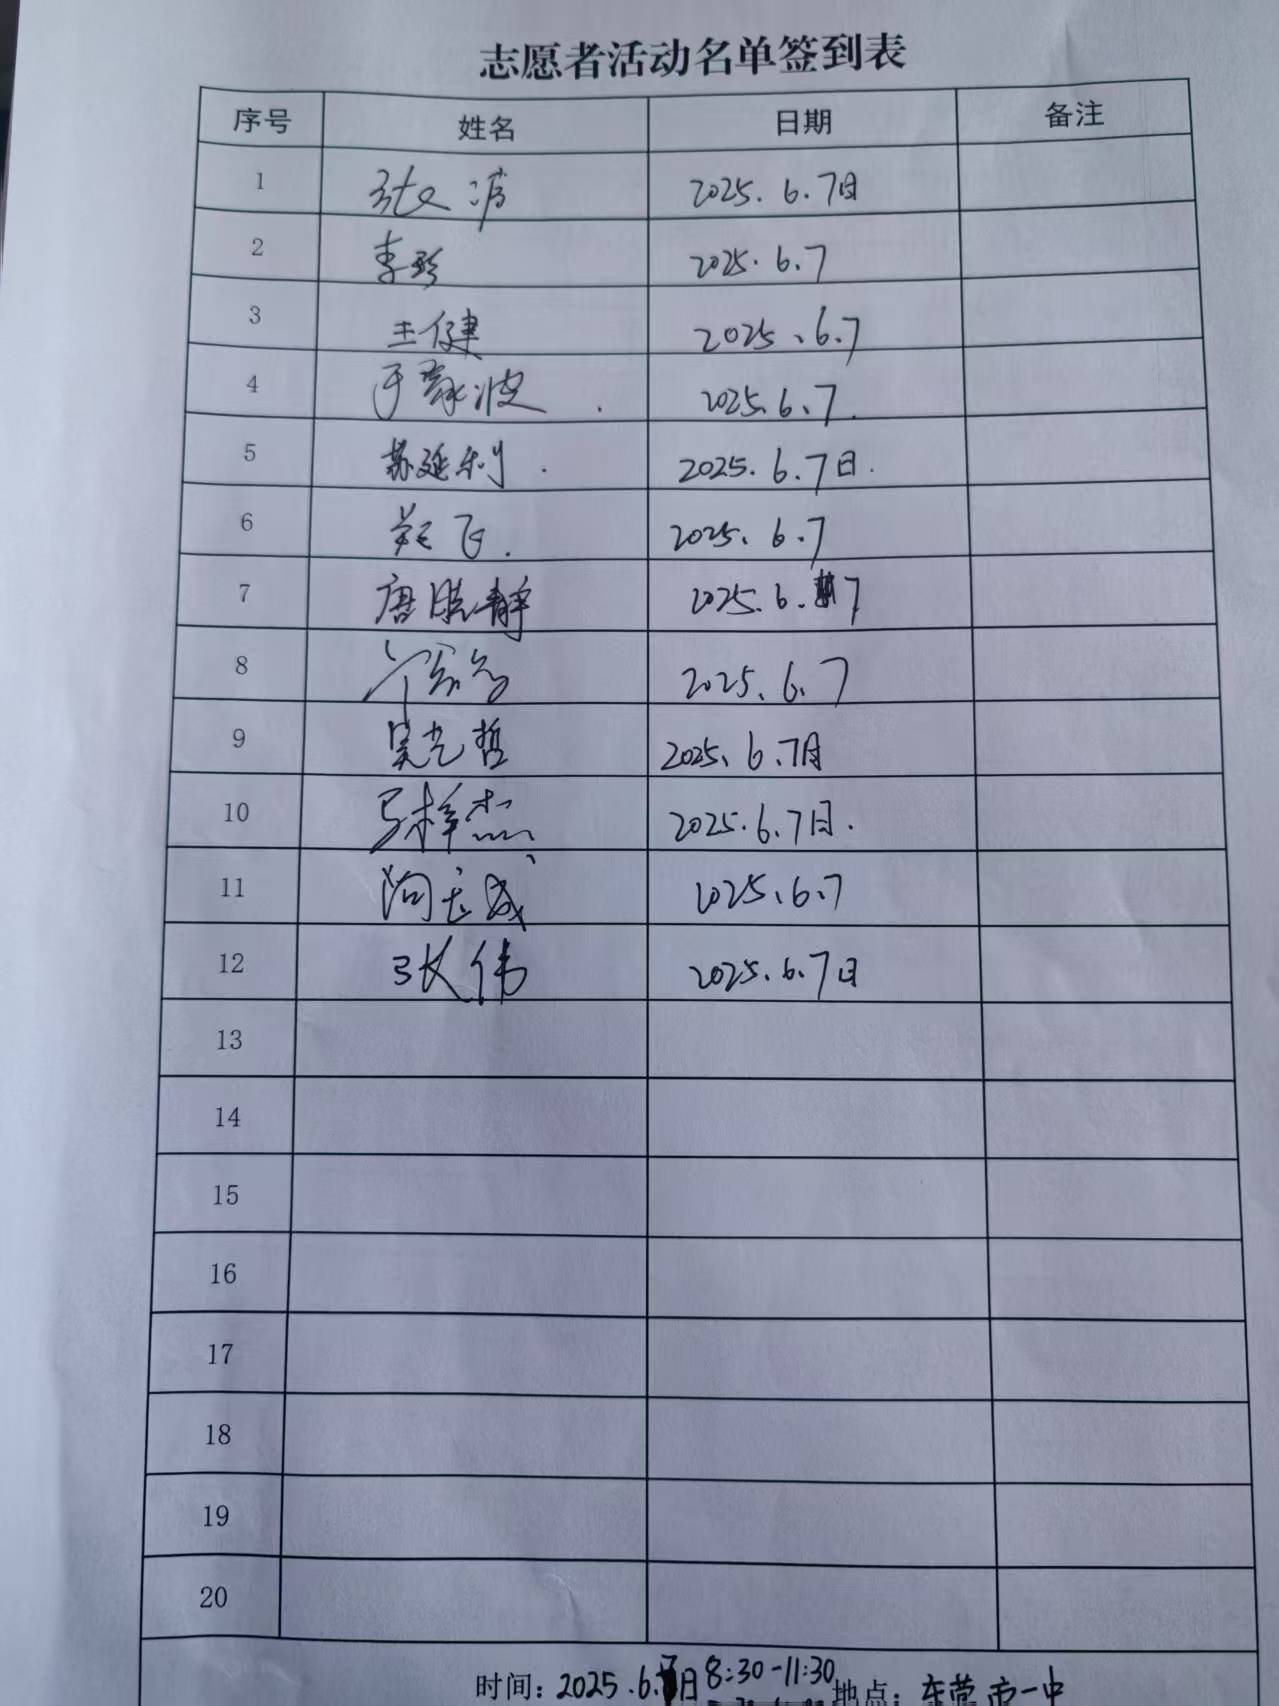 志愿者活动名单签到表
序号 姓名 日期 备注
1 张 2025.6.7日
2 李珍 2025.6.7
3 王健 2025.6.7
4 于 波 2025.6.7.
5 苏延利. 2025.6.7日.
6 飞. 2025.6.7
7 唐晓静 2025.6.7
8 2025.6.7
9 吴光哲 2025.6.7日
10 马梓杰 2025.6.7日.
11 2025.6.7
12 张伟 2025.6.7日
13
14
15
16
17
18
19
20
时间：2025.6.7日8:30-11:30 地点：东营市一中